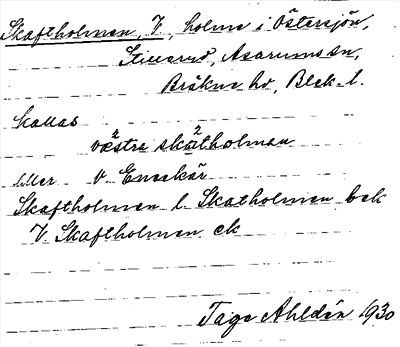 Skaftholmen, V, holme i Östersjön,
Stilleryd, Asarums sn,
Bräkne hd, Blek. l.
kallas
västra skatholman
eller v Eneskär
Skaftholmen l. Skatholmen bek
V. Skaftholmen ek
Tage Ahldén 1930